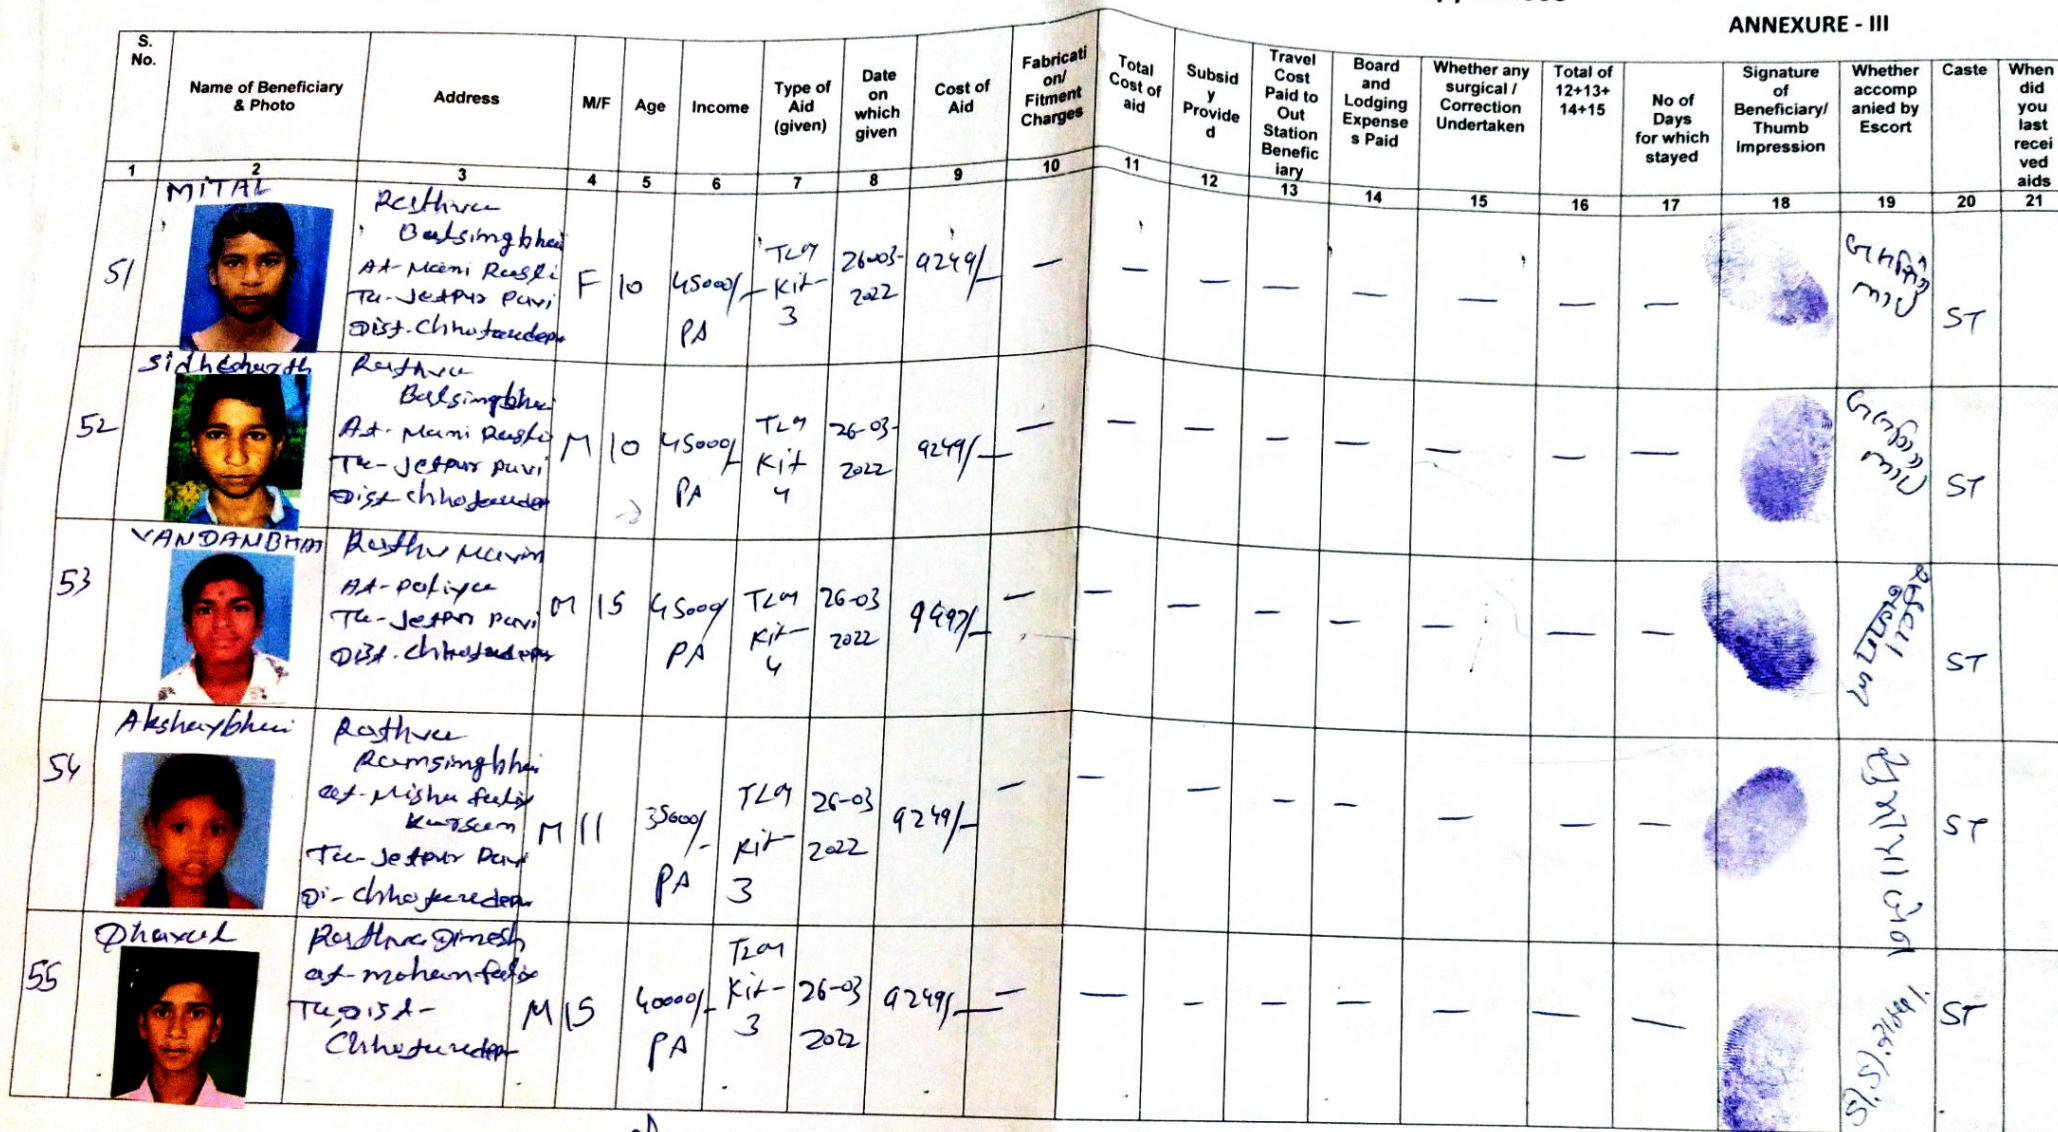 ANNEXURE - III
S. No.
Name of Beneficiary & Photo
Address
M/F
Age
Income
Type of Aid (given)
Date on which given
Cost of Aid
Fabricati on/ Fitment Charges
Total Cost of aid
Subsid y Provide d
Travel Cost Paid to Out Station Benefic iary
Board and Lodging Expense s Paid
Whether any surgical / Correction Undertaken
Total of 12+13+ 14+15
No of Days for which stayed
Signature of Beneficiary/ Thumb Impression
Whether accomp anied by Escort
Caste
When did you last recei ved aids
1 2 3 4 5 6 7 8 9 10 11 12 13 14 15 16 17 18 19 20 21
MITAL
Rathva
Balsingbhai
At-
Tu-Jetpur Pavi
Dist-Chhotaudepu
51 F 10 45000/- PA TLM Kit- 3 26-03- 2022 9249/- — — — — — — — — ST
Rathva
Balsingbhai
At-
Tu-Jetpur Pavi
Dist-Chhotaudepu
52 M 10 45000/- PA TLM Kit 4 26-03- 2022 9249/- — — — — — — — — ST
VANDANBHAI
At-
Tu-Jetpur Pavi
Dist-Chhotaudepu
53 M 15 45000/ PA TLM Kit- 4 26-03 2022 — — — — — — — — ST
Akshaybhai
Rathva
Ramsingbhai
at-
Tu-Jetpur Pavi
Di-Chhotaudepu
54 M 11 35000/- PA TLM Kit- 3 26-03 2022 9249/- — — — — — — — — ST
Dhaval
Rathva Dinesh
at-
Tu, Dist-
Chhotaudepu
55 M 15 40000/- PA TLM Kit- 3 26-03 2022 9249/- — — — — — — — — ST